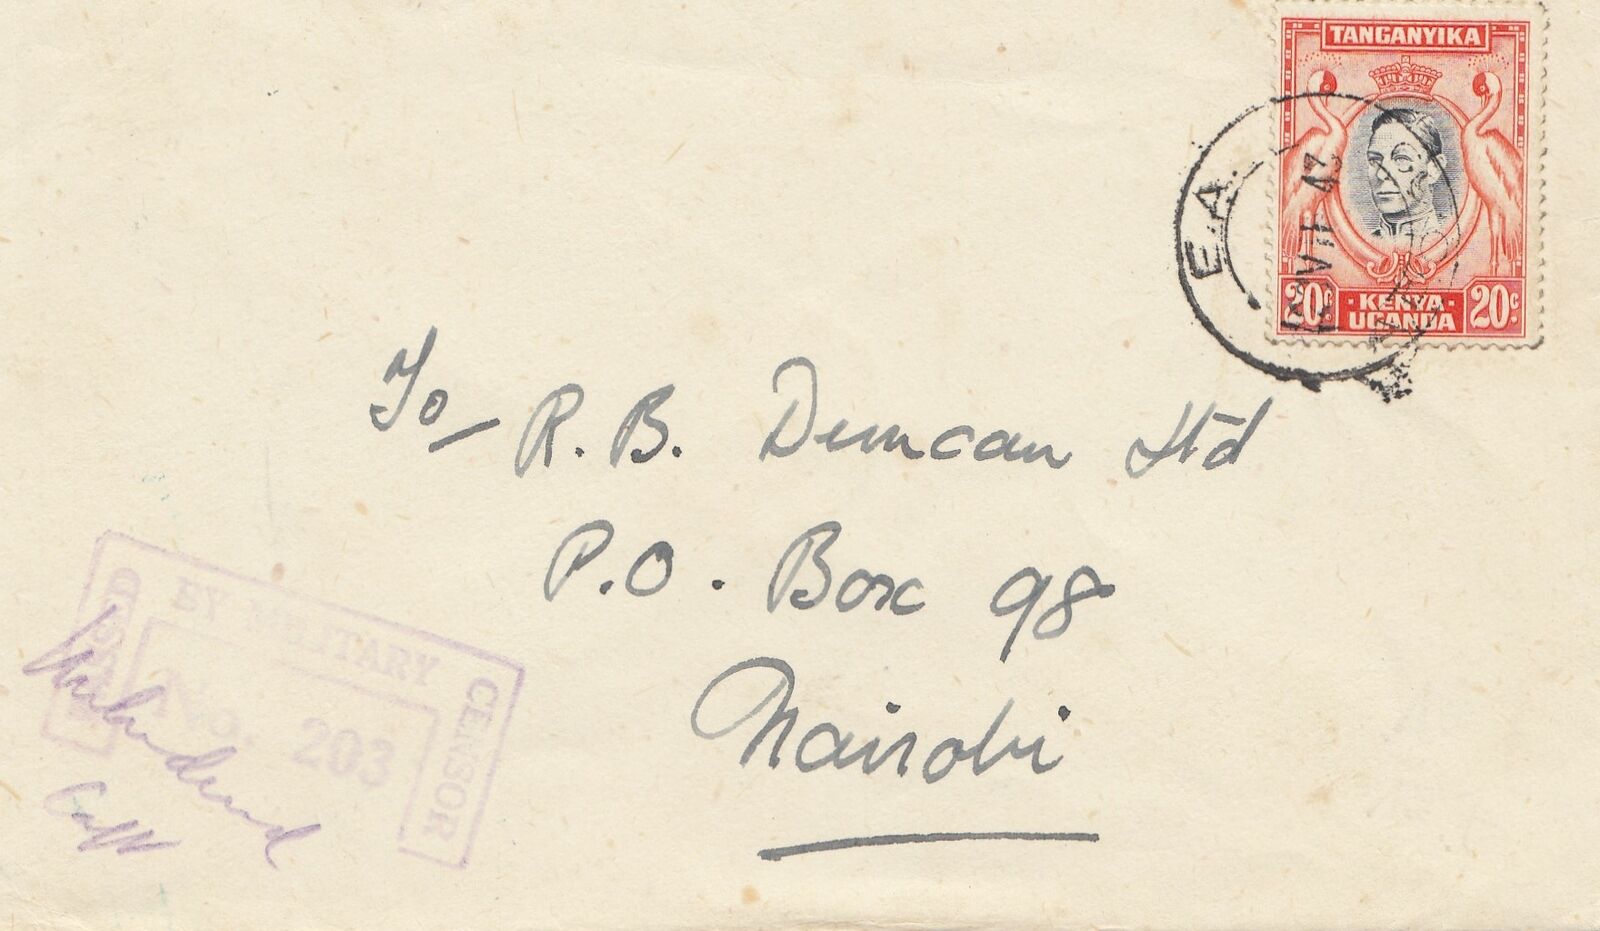 TANGANYIKA
20c · KENYA · 20c.
UGANDA
E.A.
43
To R. B. Duncan Ltd
P.O. Box 98
Nairobi
PASSED
BY MILITARY
CENSOR
No. 203
Capt